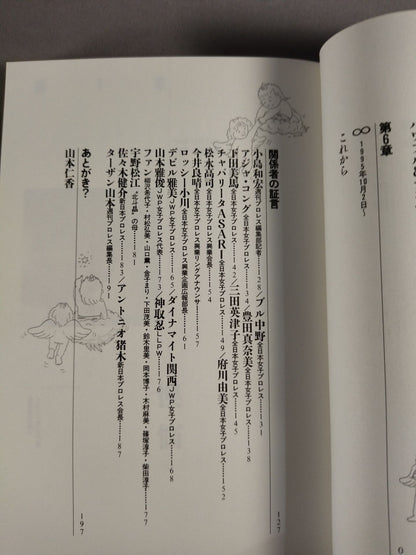 第6章
∞ 1995年10月2日〜
これから
関係者の証言……127
小島和宏 週刊プロレス編集部記者……128／ブル中野 全日本女子プロレス……131
アジャ・コング 全日本女子プロレス……134／豊田真奈美 全日本女子プロレス……138
下田美馬 全日本女子プロレス……142／三田英津子 全日本女子プロレス……145
チャパリータASARI 全日本女子プロレス……149／府川由美 全日本女子プロレス……152
松永高司 全日本女子プロレス興業会長……154
今井良晴 全日本女子プロレス興業リングアナウンサー……157
ロッシー小川 全日本女子プロレス興業企画広報部長……161
デビル雅美 JWP女子プロレス……165／ダイナマイト関西 JWP女子プロレス……168
山本雅俊 JWP女子プロレス代表……173／神取忍 LLPW……176
ファン 柳沢希代子・村松弘美・山口薫・金子まり・下田茂美・鈴木里美・岡本博子・木村麻美・篠塚淳子・柴田淳子……177
宇野松江 "北斗晶"の母……181
佐々木健介 新日本プロレス……183／アントニオ猪木 新日本プロレス会長……187
ターザン山本 週刊プロレス編集長……191
あとがき？……197
山本仁香